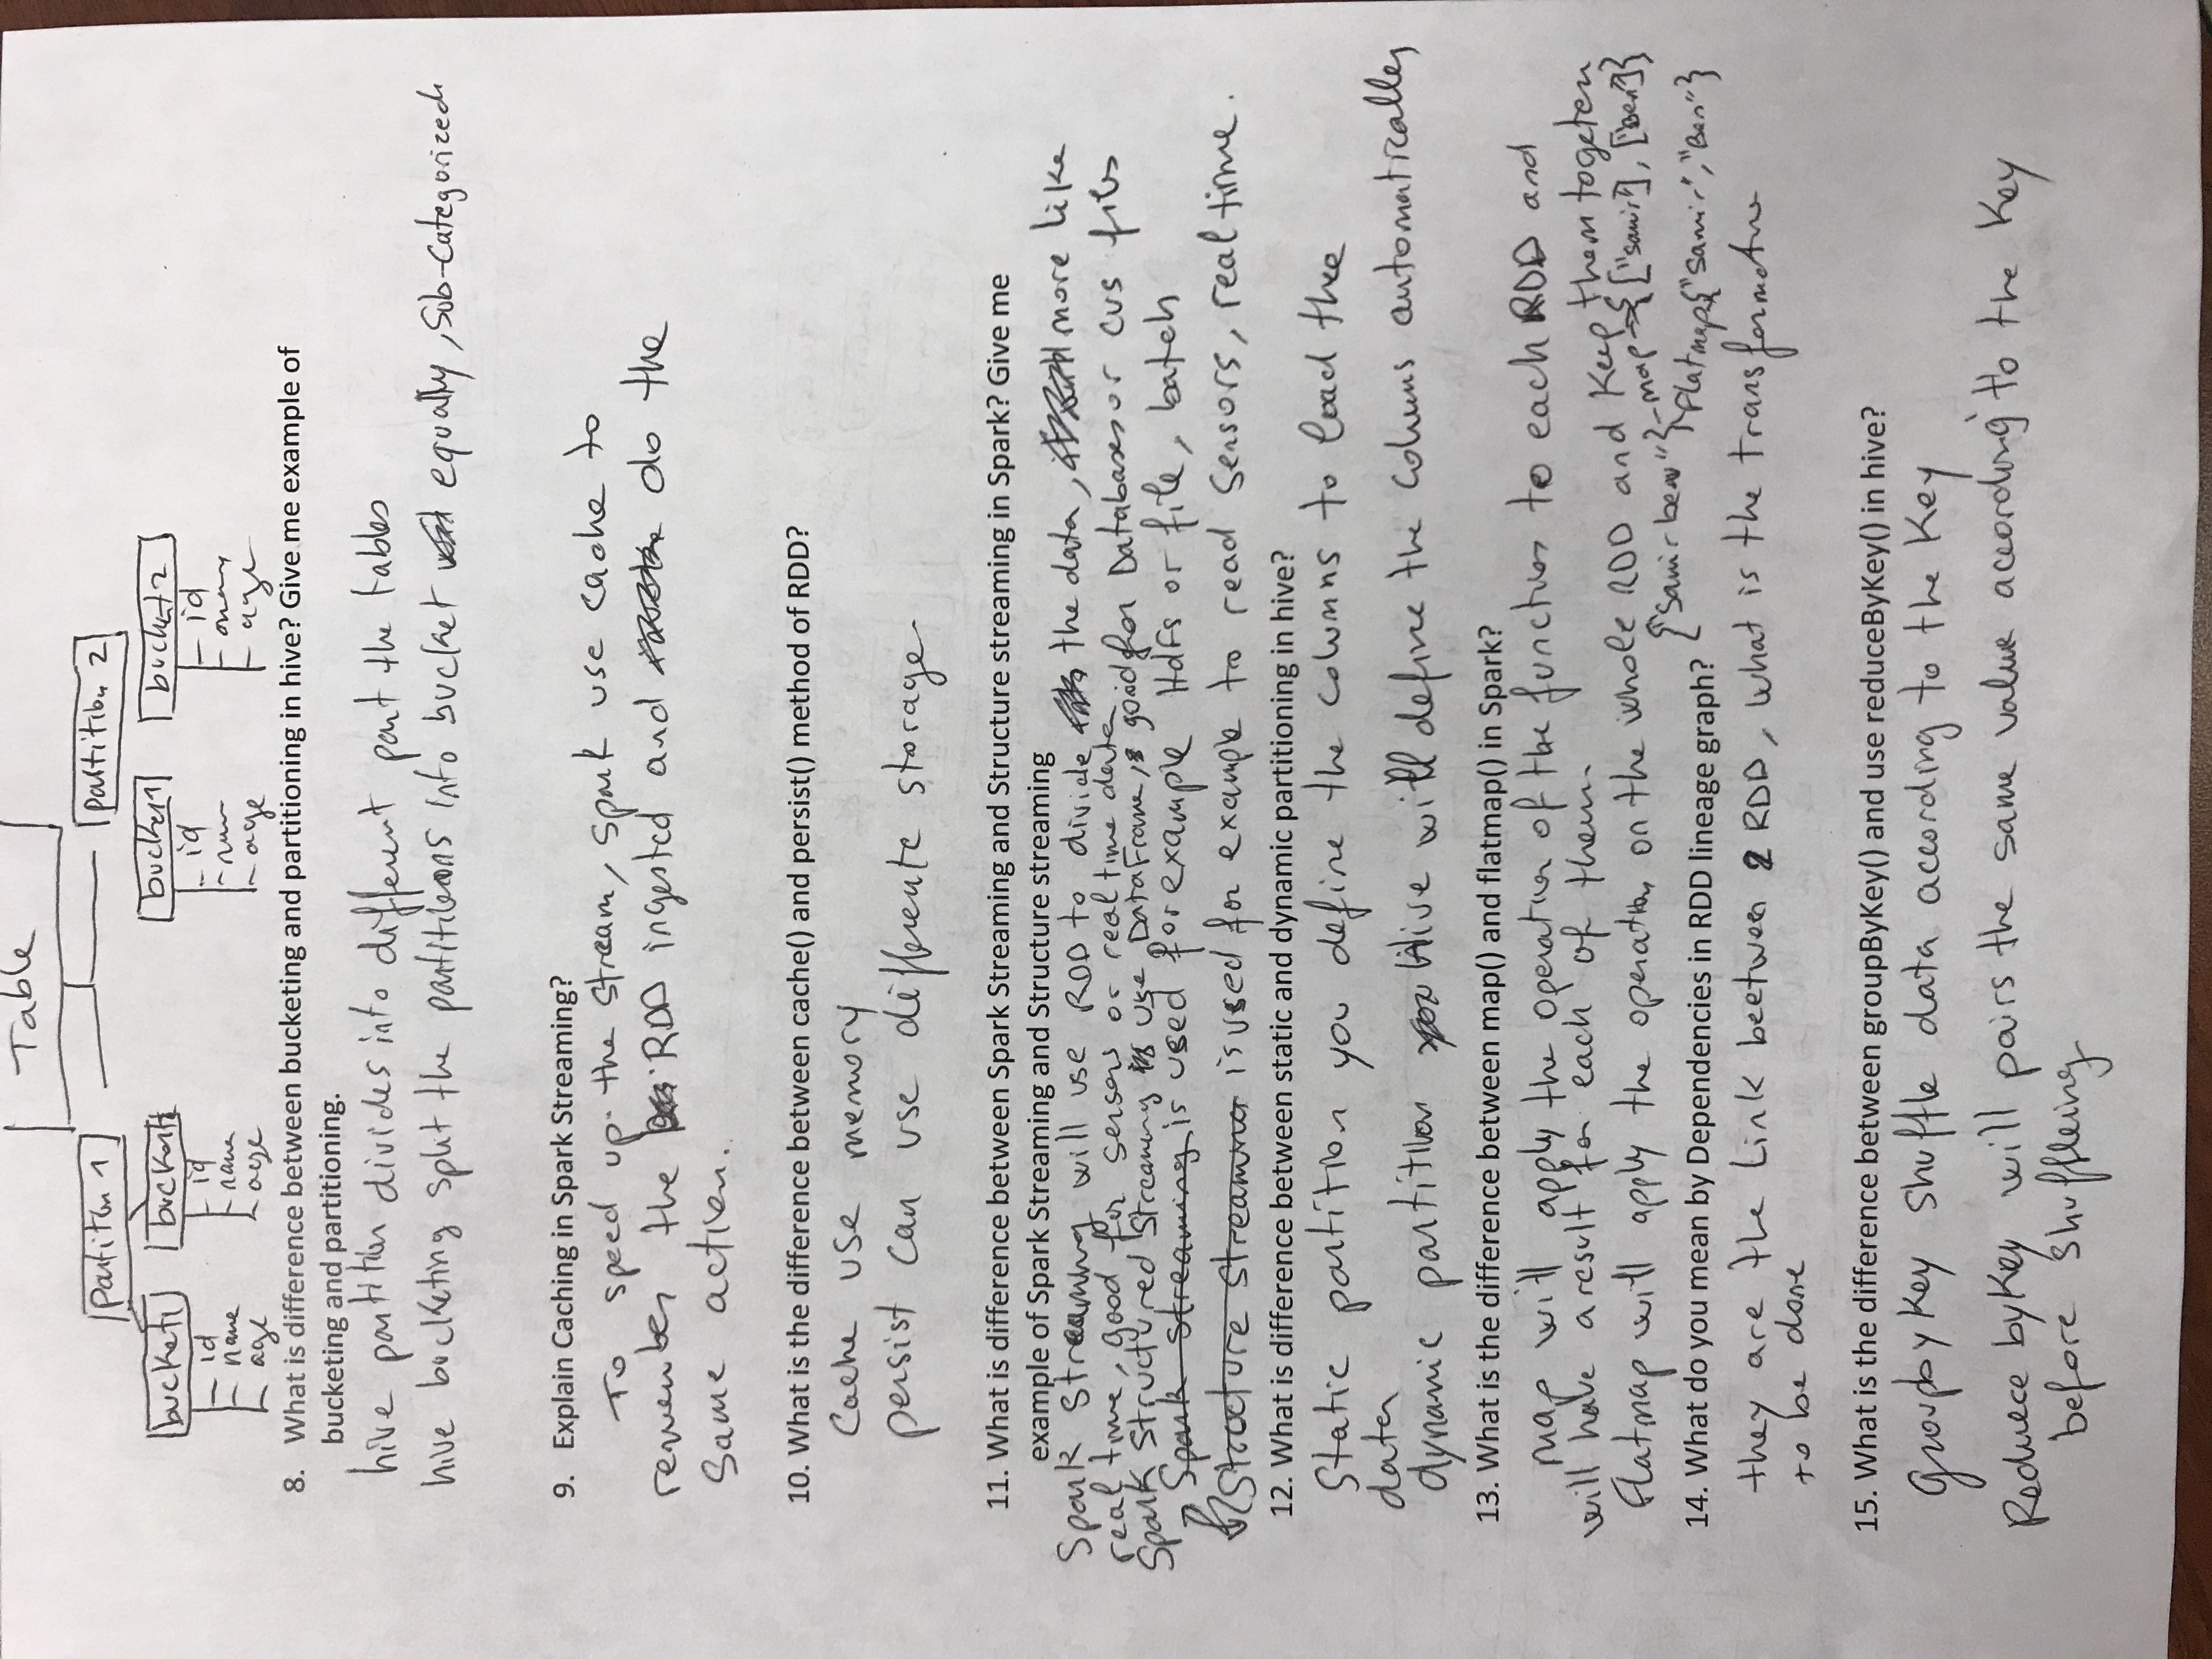 Table
Partition 1
partition 2
bucket1
bucket
bucket1
bucket 2
id
id
id
id
name
name
age
age
age
age
8. What is difference between bucketing and partitioning in hive? Give me example of
bucketing and partitioning.
hive partition divides into different part the tables
hive bucketing split the partitions into bucket equally, Sub-Categorized
9. Explain Caching in Spark Streaming?
To speed up the stream, spark use cache to
remember the RDD ingested and do the
same action.
10. What is the difference between cache() and persist() method of RDD?
Cache use memory
persist can use differente storage
11. What is difference between Spark Streaming and Structure streaming in Spark? Give me
example of Spark Streaming and Structure streaming
Spark Streaming will use RDD to divide the data, more like
real time, good for sensors or real time data
Spark Structured Streaming use DataFrame, good for Databases or cvs files
Spark Streaming is used for example Hdfs or file, batch
Structure Streaming is used for example to read sensors, real time.
12. What is difference between static and dynamic partitioning in hive?
Static partition you define the columns to load thee
data
dynamic partition Hive will define the columns automatically
13. What is the difference between map() and flatmap() in Spark?
map will apply the operation of the function to each RDD and
will have a result for each of them
Flatmap will apply the operation on the whole RDD and Keep them togeter
{"Samir ben"} map → {["Samir"], ["Ben"]}
Flatmap {"Samir", "Ben"}
14. What do you mean by Dependencies in RDD lineage graph?
they are the link beetween 2 RDD, what is the transformation
to be done
15. What is the difference between groupByKey() and use reduceByKey() in hive?
Groupby Key shuffle data according to the Key
Reduece byKey will pairs the same value according to the Key
before shuffleing